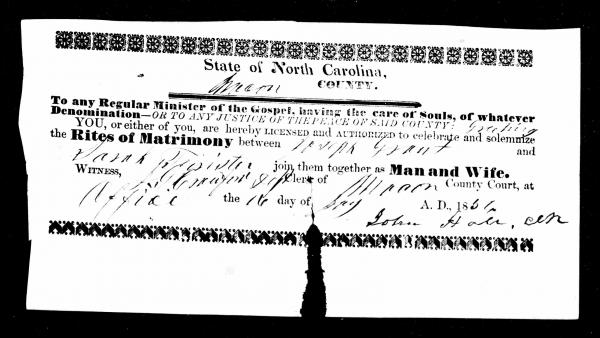 State of North Carolina,
Macon COUNTY.
To any Regular Minister of the Gospel, having the care of Souls, of whatever
Denomination—OR TO ANY JUSTICE OF THE PEACE OF SAID COUNTY: Greeting
YOU, or either of you, are hereby LICENSED and AUTHORIZED to celebrate and solemnize
the Rites of Matrimony between Joseph Grant and
Sarah join them together as Man and Wife.
WITNESS, Clerk of Macon County Court, at
Office the 16 day of A. D., 186
John Hall, Clk